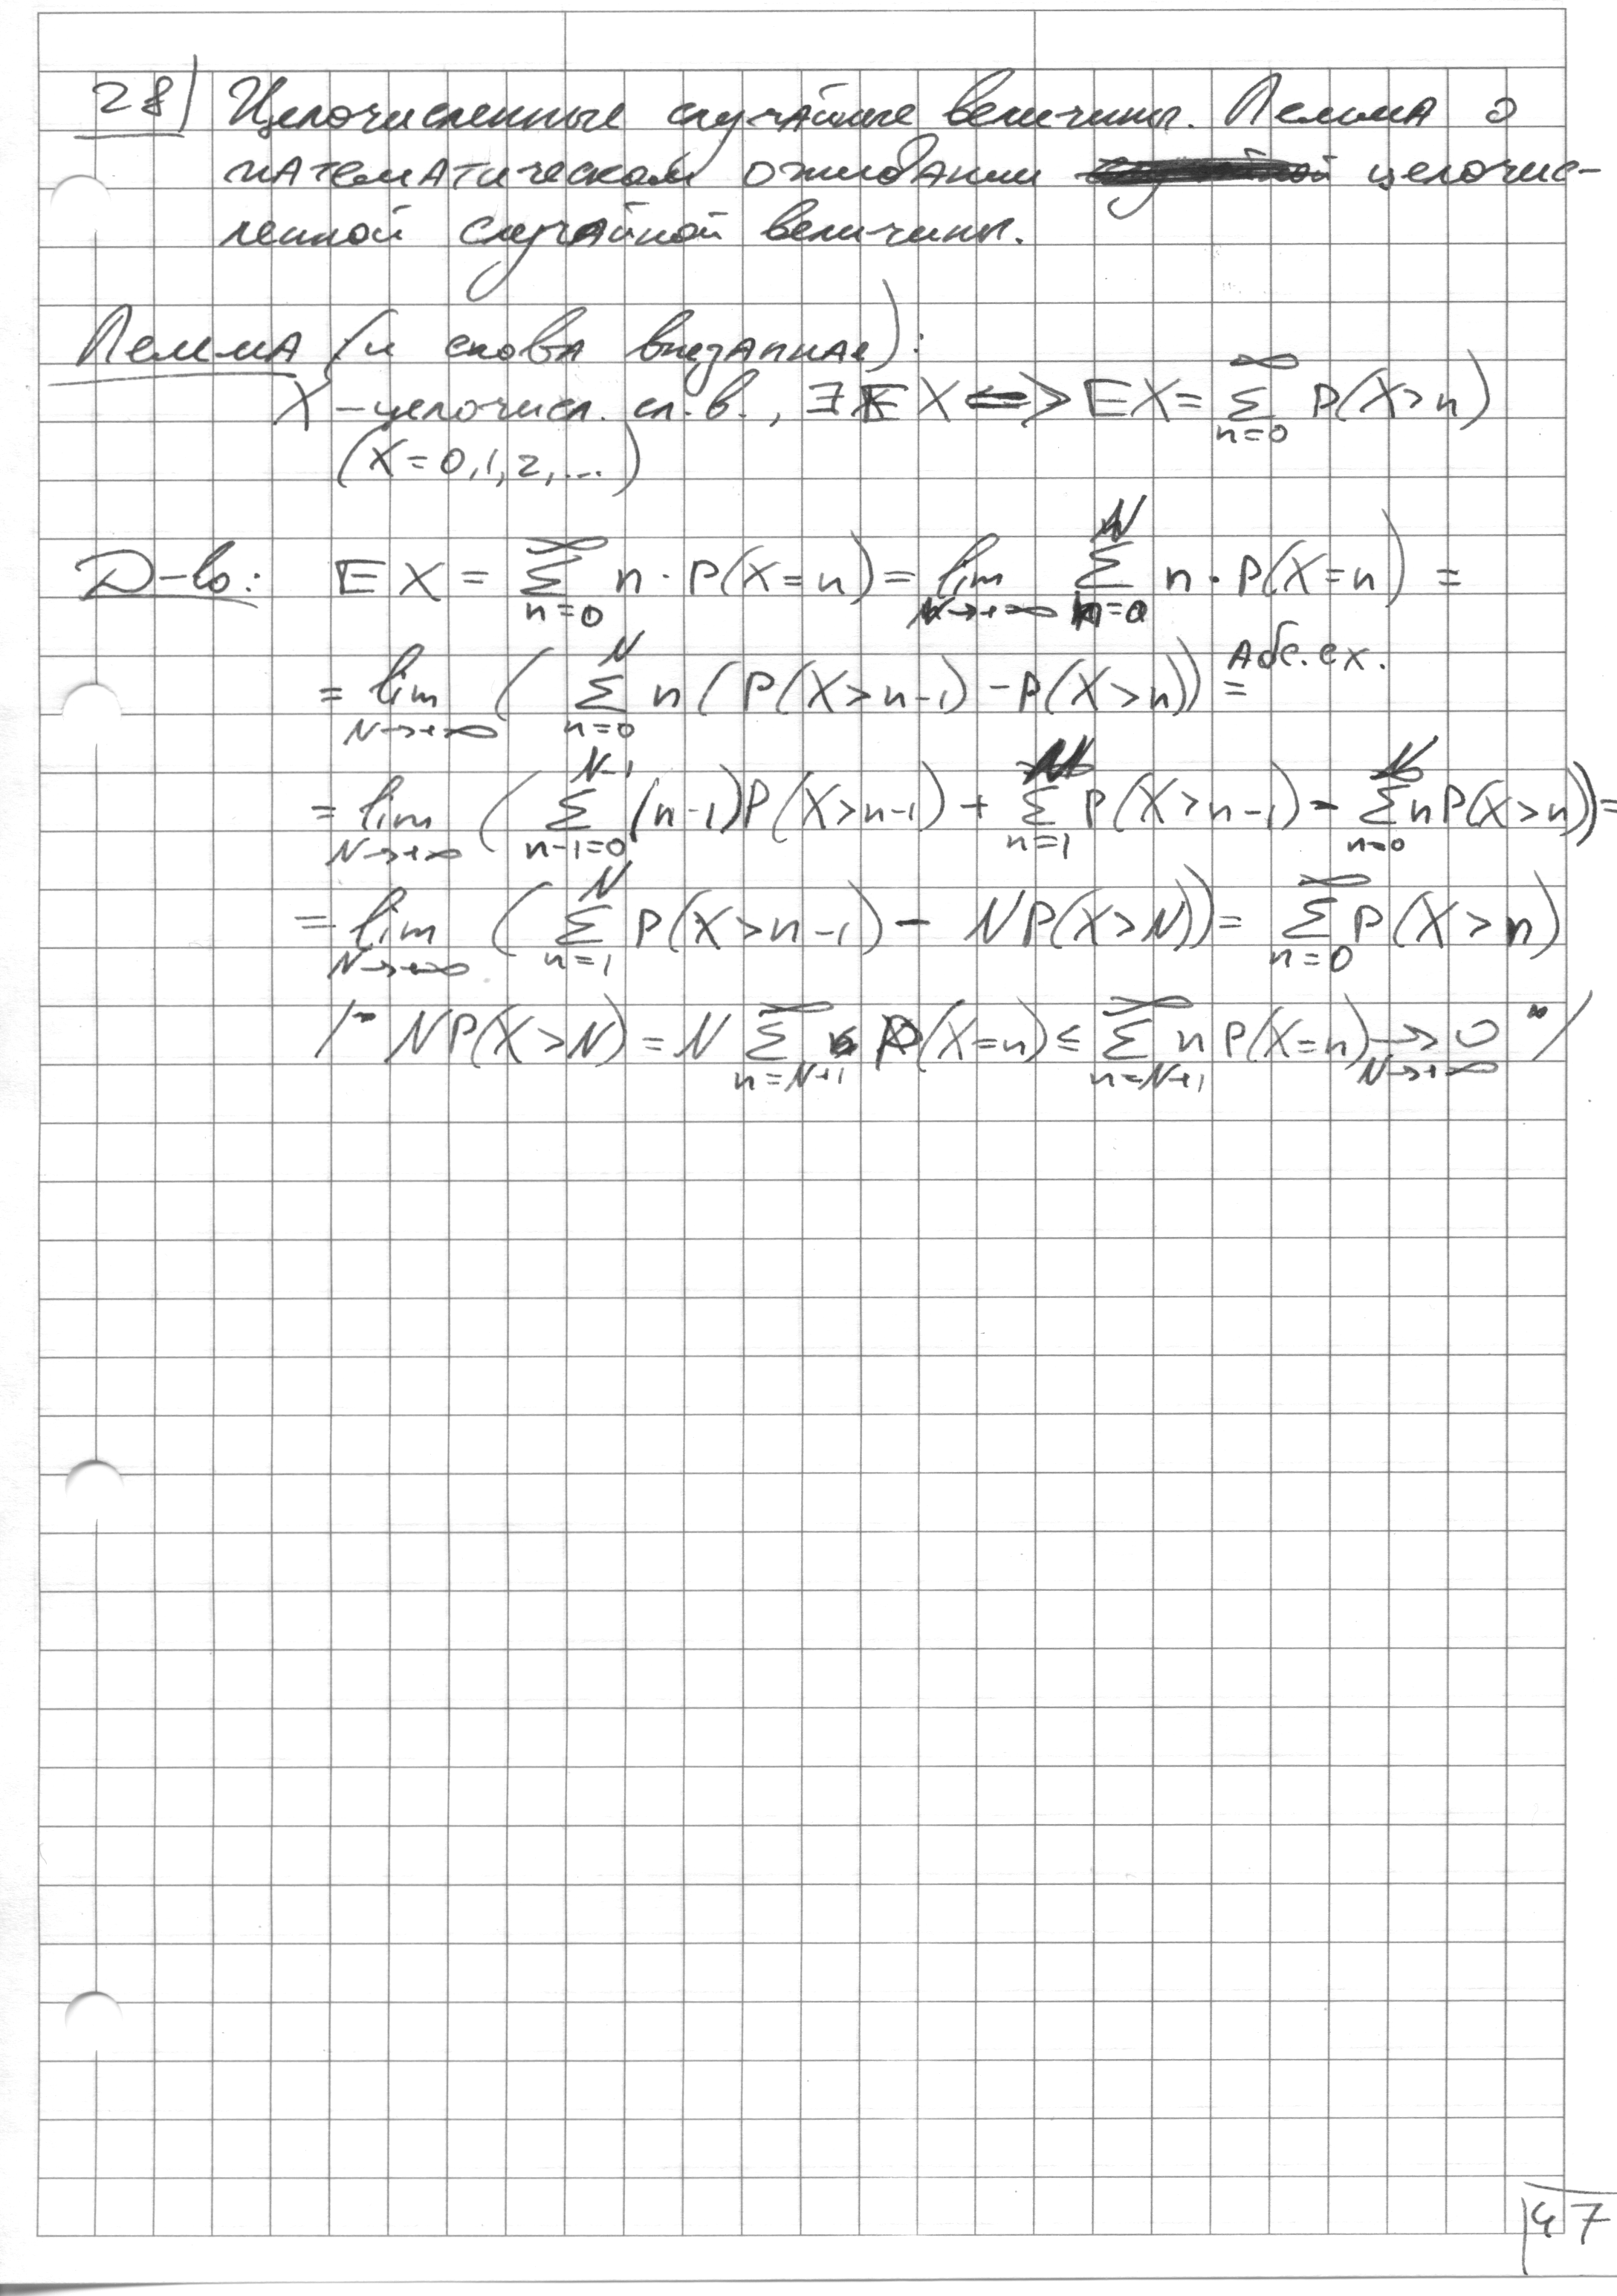 28) Целочисленные случайные величины. Лемма о
математическом ожидании целочис-
ленной случайной величины.
Лемма (и снова внезапная):
X – целочисл. сл. в., ∃ E X <=> E X = ∑_{n=0}^{∞} P(X>n)
(X = 0, 1, 2, ...)
Д-во: E X = ∑_{n=0}^{∞} n · P(X=n) = lim_{N→+∞} ∑_{n=0}^{N} n · P(X=n) =
= lim_{N→+∞} ( ∑_{n=0}^{N} n (P(X>n-1) - P(X>n)) =^{абс. сх.}
= lim_{N→+∞} ( ∑_{n-1=0}^{N-1} (n-1)P(X>n-1) + ∑_{n=1}^{N} P(X>n-1) - ∑_{n=0}^{N} nP(X>n)) =
= lim_{N→+∞} ( ∑_{n=1}^{N} P(X>n-1) - NP(X>N)) = ∑_{n=0}^{∞} P(X>n)
/" NP(X>N) = N ∑_{n=N+1}^{∞} P(X=n) ≤ ∑_{n=N+1}^{∞} n P(X=n) →_{N→+∞} 0 "/
47